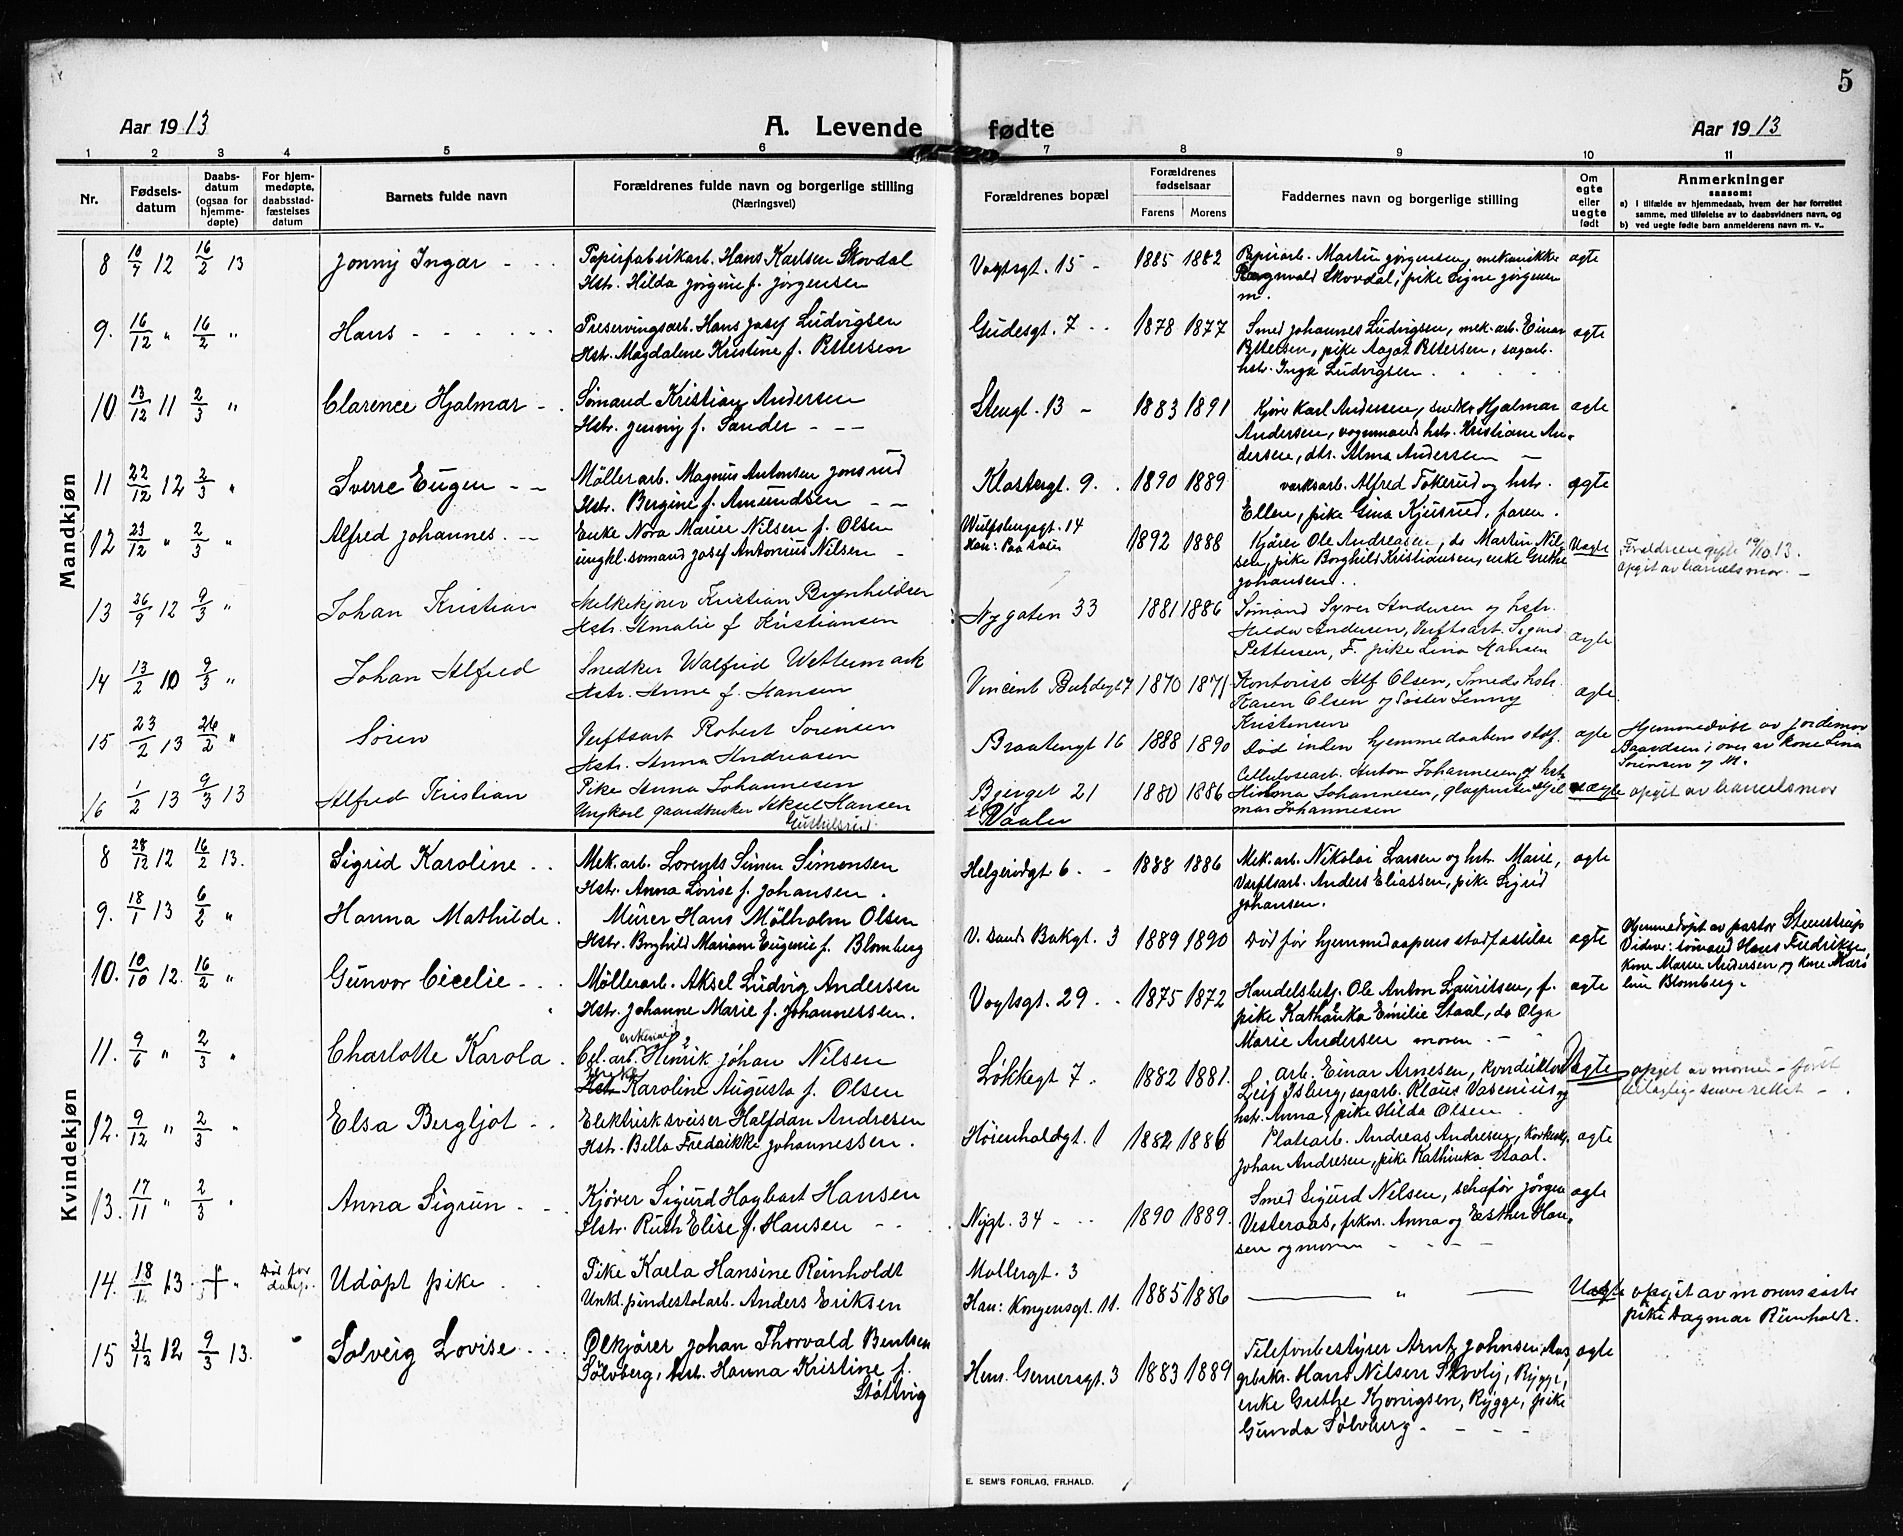 5
Aar 1913
A. Levende fødte
Aar 1913
1 2 3 4 5 6 7 8 9 10 11
Nr.
Fødsels-
datum
Daabs-
datum
(ogsaa for
hjemme-
døpte)
For hjem-
medøpte,
daabsstad-
fæstelses
datum
Barnets fulde navn
Forældrenes fulde navn og borgerlige stilling
(Næringsvei)
Forældrenes bopæl
Forældrenes
fødselsaar
Farens Morens
Faddernes navn og borgerlige stilling
Om
egte
eller
uegte
født
Anmerkninger
saasom:
a) i tilfælde av hjemmedaab, hvem der har forrettet
samme, med tilføielse av to daabsvidners navn, og
b) ved uegte fødte barn anmelderens navn m. v..
Mandkjøn
8 10/7 12 16/2 13 Jonny Ingar
Papirfabrikarb. Hans Karlsen Skovdal
Hstr. Hilda Jörgine f. Jörgensen
Vogtsgt. 15 1885 1882
Papirarb. Martin Jörgensen, mekanikke
Ragnvald Skovdal, pike Signe Jörgensen
m.
ægte
9. 16/12 " 16/2 " Hans
Preservingsarb. Hans Josef Ludvigsen
Hstr. Magdalene Kristine f. Pettersen
Gudesgt. 7 1878 1877
Smed Johannes Ludvigsen, mek. arb. Einar
Pettersen, pike Aagot Pettersen, sagarb.
hstr. Inga Ludvigsen
ægte
10 13/12 11 2/3 " Clarence Hjalmar
Sömand Kristian Andersen
Hstr. Jenny f. Sander
Stengt. 13 1883 1891
Kjörer Karl Andersen, snedker Hjalmar
Andersen, vognmands hstr. Kristiane An-
dersen, dtr. Alma Andersen
ægte
11 22/12 12 2/3 " Sverre Eugen
Möllerarb. Magnus Antonsen Jonsrud
Hstr. Bergine f. Amundsen
Klostergt. 9. 1890 1889
verksarb. Alfred Fokerud og hstr.
Ellen, pike Gina Kjusrud, faren.
ægte
12 23/12 " 2/3 " Alfred Johannes
Enke Nora Marie Nilsen f. Olsen
ungkl. sömand Josef Antonius Nilsen
Wulfsbergsgt. 14
Han: Paa sein
1892 1888
Kjörer Ole Andreasen, do Martin Nil-
sen, pike Borghild Kristiansen, enke Grethe
Johansen
Uægte
Forældrene gifte 19/10 13.
opgit av barnets mor.
13 26/9 12 9/3 " Johan Kristian
Melkekjörer Kristian Brynhildsen
Hstr. Amalie f. Kristiansen
Nygaten 33 1881 1886
Sömand Syver Andersen og hstr.
Hilda Andersen, Verftsarb. Sigurd
Pettersen, F. pike Lina Hansen
ægte
14 13/2 10 9/3 " Johan Alfred
Snedker Walfrid Wettermark
Hstr. Anne f. Hansen
Vincent Buddegt 7 1870 1871
Kontorist Alf Olsen, Smeds hstr.
Karen Olsen og Söster Jenny
Kristensen
ægte
15 23/2 13 26/2 " Sören
Verftsarb Robert Sörensen
Hstr. Anna Andreasen
Braatengt 16 1888 1890
Död inden hjemmedaabens stadf.
ægte
Hjemmedöbt av jordemor
Baardsen i over. av Kone Lina
Sörensen og M.
16 1/2 13 9/3 13 Alfred Kristian
Pike Anna Johannesen
Ungkarl gaardbruker Aksel Hansen
Bjerget 21
i Vaaler
1880 1886
Cellulosearb. Anton Johannesen og hstr
Helma Johannesen, glaspuster Hjel-
mar Johannesen
uægte
opgit av barnets mor
Kvindekjøn
8 28/12 12 16/2 13. Sigrid Karoline
Mek. arb. Lorents Simen Simonsen
Hstr. Anna Lovise f. Johansen.
Helgerödgt 6. 1888 1886
Mek. arb. Nikolai Larsen og hstr. Marie,
Verftsarb. Anders Eliassen, pike Sigrid
Johansen.
ægte
9. 18/1 13 6/2 " Hanna Mathilde
Murer Hans Mölholm Olsen
Hstr. Borghild Mariane Eugenie f. Blomberg
V. Sands Bakgt. 3 1889 1890
Död för hjemmedaapens stadfæstelse
ægte
Hjemmedöpt av pastor Stenstrup
Vidner: sömand Hans Fredriksen,
Kone Marie Andersen og Kone Karo
line Blomberg.
10. 10/10 12. 16/2 " Gunvor Cicelie
Möllerarb. Aksel Ludvig Andersen
Hstr. Johanne Marie f. Johannessen.
Vogtsgt. 29 1875 1872
Handelsbetj. Ole Anton Lauritsen, f.
pike Kathinka Emilie Staal, do Olga
Marie Andersen moren
ægte
11. 9/6 " 2/3 " Charlotte Karola
enkemand
Cel. arb. Henrik Johan Nilsen
Enke
Hstr Karoline Augusta f. Olsen
Lökkegt 7 1882 1881.
arb. Einar Arnesen, konduktör
Leif Isberg, sagarb. Klaus Vasenius og
hstr. Anna, pike Hilda Olsen
Uægte
opget av moren först
urigtig senere rettet
12. 9/12 " 2/3 " Elsa Bergljot
Elektrisksveiser Halfdan Andresen
Hstr. Bella Fredrikke Johannessen.
Hörenholdgt. 1 1882 1886
Platearb. Andreas Andresen, Korkarb.
Johan Andresen, pike Kathinka Staal.
ægte
13. 17/11 " 2/3 " Anna Sigrun
Kjörer Sigurd Hagbart Hansen
Hstr. Ruth Elise f. Hansen
Nygt. 34 1890 1889.
Smed Sigurd Nilsen, schaför Jörgen
Vesteraas, frknr. Anna og Esther Han-
sen og moren
ægte
14. 18/1 13 † " Död för daap. Udöpt pike
Pike Karla Hansine Reinholdt
Unkl. pindestolarb. Anders Eriksen
Mollergt. 3
Han: Kongensgt. 11.
1885 1886
"
Uægte
opgit av morens söster
pike Dagmar Reinholdt.
15 31/12 12 9/3 13. Solveig Lovise
Ölkjörer Johan Thorvald Bentsen
Sölvberg, hstr. Hanna Kristine f.
Stöttvig
Henr. Gernersgt. 3 1883 1889
Telefonbestyrer Arnt Johnsen,
grbskr. Hans Nilsen Skovly, Rygge,
enke Grethe Kjönigsen, Rygge, pike
Gunda Sölvberg
ægte
E. SEM'S FORLAG, FR.HALD.